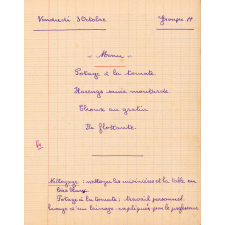 Vendredi 3 Octobre Groupe A
Menu
Potage à la tomate
Harengs sauce moutarde
Choux au gratin
Ile flottante
Nettoyage : nettoyer les cuisinières et la table en
bois blanc
Potage à la tomate : travail personnel
lavage d'un lainage : expliqué par le professeur